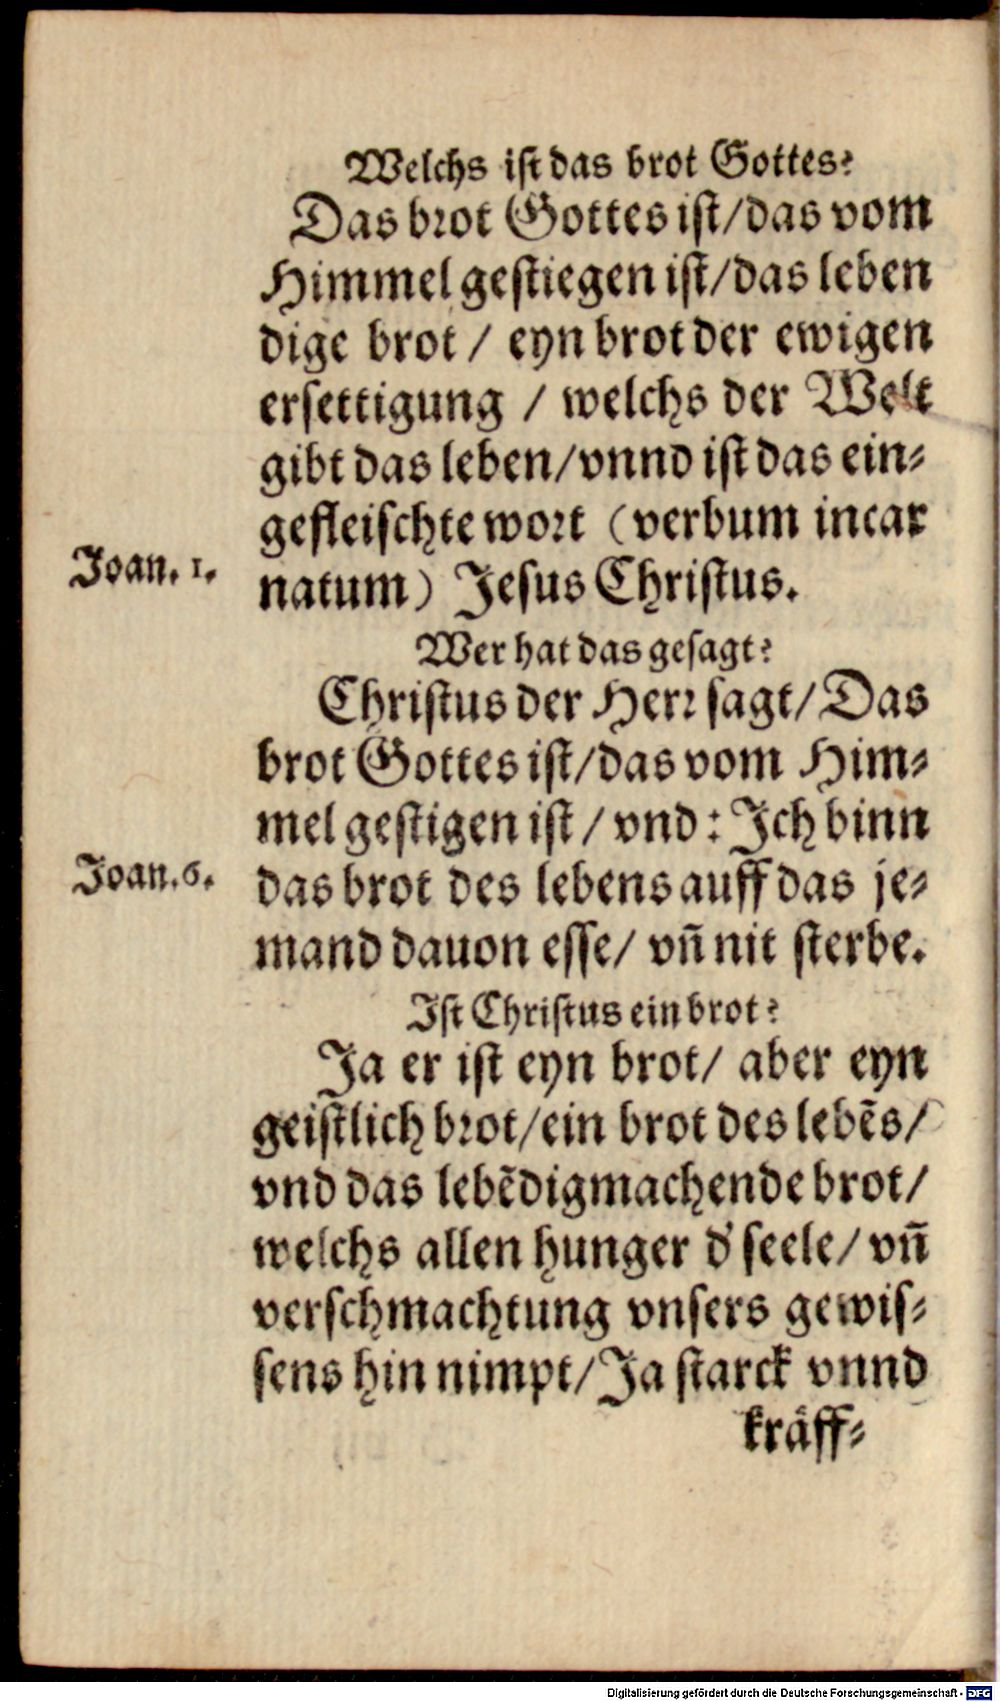 Welchs ist das brot Gottes?
Das brot Gottes ist/das vom
Himmel gestiegen ist/das leben
dige brot / eyn brot der ewigen
ersettigung / welchs der Welt
gibt das leben/vnnd ist das ein⸗
gefleischte wort (verbum incar
Joan. 1.
natum) Jesus Christus.
Wer hat das gesagt?
Christus der Herr sagt/Das
brot Gottes ist/das vom Him⸗
mel gestigen ist / vnd: Jch binn
Joan.6.
das brot des lebens auff das je⸗
mand dauon esse/ vn̄ nit sterbe.
Jst Christus ein brot?
Ja er ist eyn brot/ aber eyn
geistlich brot/ein brot des lebēs/
vnd das lebēdigmachende brot/
welchs allen hunger d' seele/ vn̄
verschmachtung vnsers gewis⸗
sens hin nimpt/Ja starck vnnd
kräff⸗
Digitalisierung gefördert durch die Deutsche Forschungsgemeinschaft - DFG